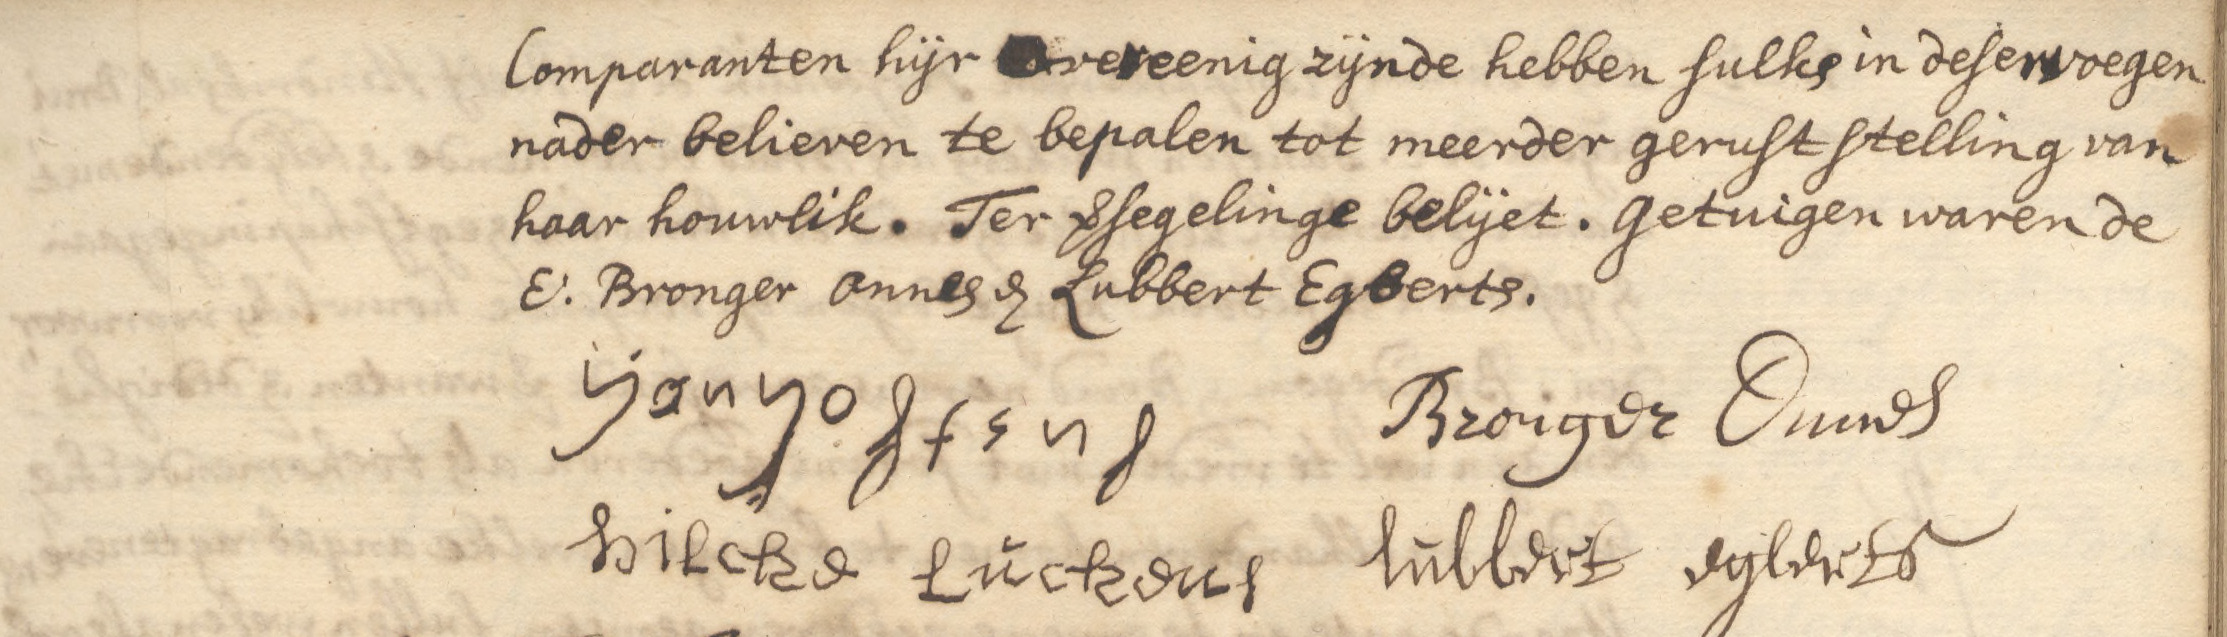 Comparanten hijr overeenig zijnde hebben sulks in deser voegen
nader believen te bepalen tot meerder geruststelling van
haar houwlik. Ter segelinge belijet. Getuigen waren de
E. Bronger Onnes & Lubbert Egberts.
Bronger Onnes
hilcke Luckens lubbert egberts